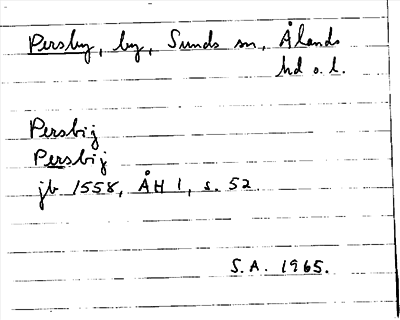 Persby, by, Sunds sn, Ålands
hd o. l.
Persbij
Persbij
jb 1558, ÅH 1, s. 52
S.A. 1965.